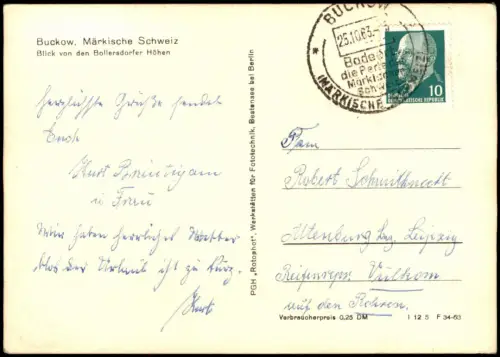 Buckow, Märkische Schweiz
Blick von den Bollersdorfer Höhen
Herzlichste Grüße sendet
Euch
Kurt Bräutigam
u Frau
Wir haben herrliches Wetter
der Urlaub ist zu kurz.
Kurt
PGH „Rotophot", Werkstätten für Fototechnik, Bestensee bei Berlin
BUCKOW
25.10.63
Badeort
die Perle
Märkischen
Schweiz
(MÄRKISCHE
10
DEUTSCHE DEMOKRATISCHE REPUBLIK
Fam
Robert Schmidtknecht
Altenburg Bez. Leipzig
Reifenrepr. Vulkan
auf den Röhren.
Verbraucherpreis 0,25 DM
I 12 5 F 34-63